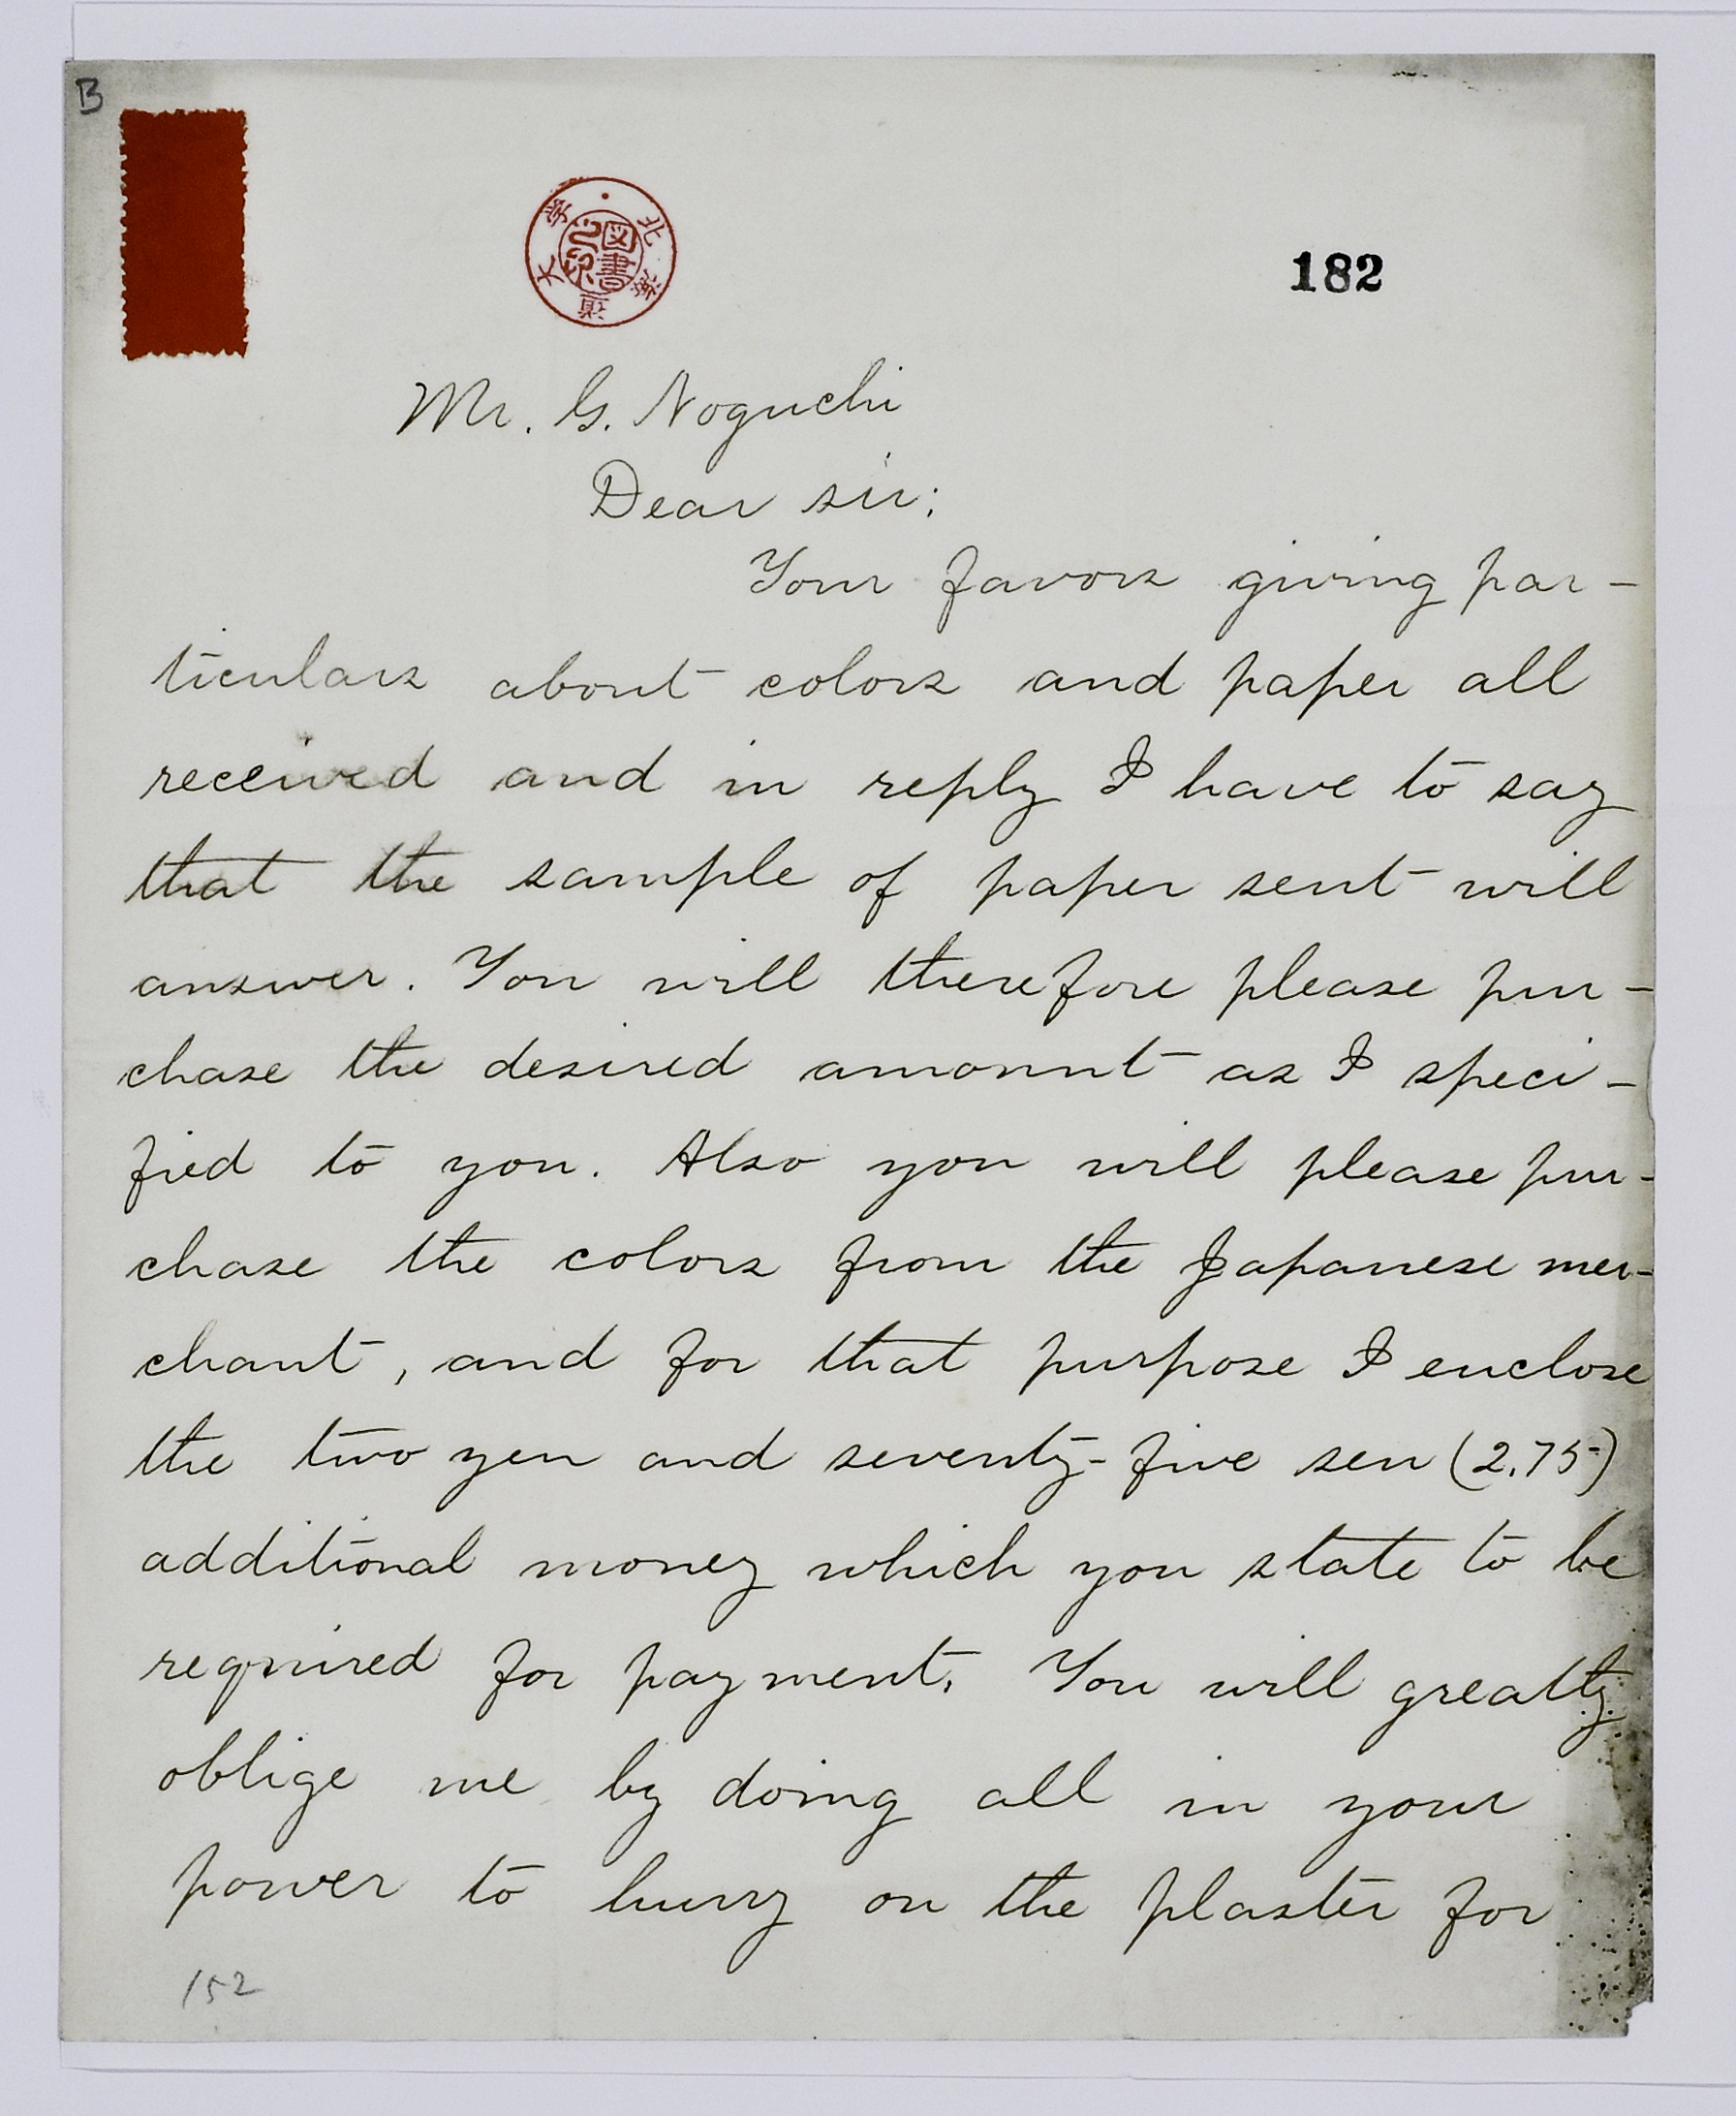 B
北海道大學
圖書之印
182
Mr. G. Noguchi
Dear sir;
Your favors giving par-
ticulars about colors and paper all
received and in reply I have to say
that the sample of paper sent will
answer. You will therefore please pur-
chase the desired amount as I speci-
fied to you. Also you will please pur-
chase the colors from the Japanese mer-
chant, and for that purpose I enclose
the two yen and seventy-five sen (2.75)
additional money which you state to be
required for payment. You will greatly
oblige me by doing all in your
power to hurry on the plaster for
152